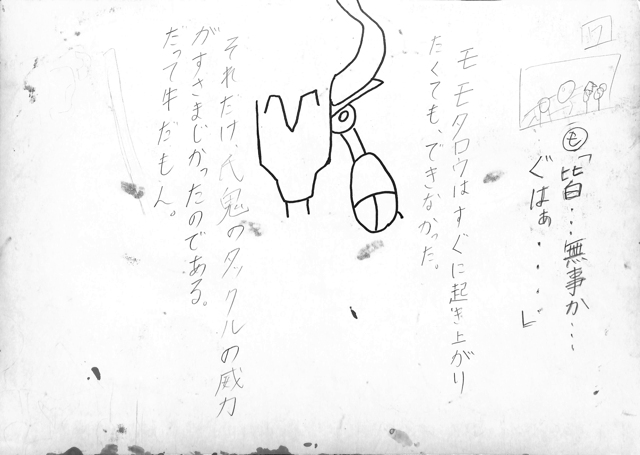 17
も「皆…無事か…
ぐはぁ・・・・」
モモタロウはすぐに起き上がり
たくても、できなかった。
それだけ、氏鬼のタックルの威力
がすさまじかったのである。
だって牛だもん。